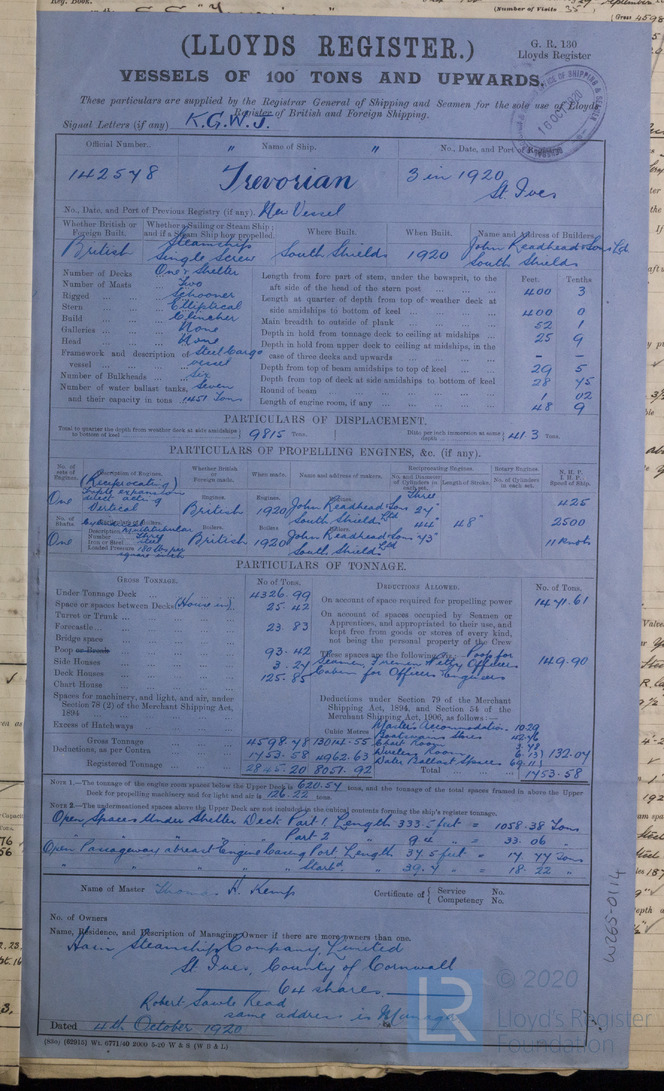 (LLOYDS REGISTER.)
G. R. 130
Lloyds Register
VESSELS OF 100 TONS AND UPWARDS.
These particulars are supplied by the Registrar General of Shipping and Seamen for the sole use of Lloyds
Register of British and Foreign Shipping.
Signal Letters (if any) K.G.W.J.
16 OCT 1920
Official Number. " Name of Ship. " No., Date, and Port of Registry.
142578 Trevorian 3 in 1920
St Ives
No., Date, and Port of Previous Registry (if any). New Vessel
Whether British or Foreign Built. Whether a Sailing or Steam Ship; and if a Steam Ship how propelled. Where Built. When Built. Name and Address of Builders.
British Steamship Single Screw South Shields 1920 John Readhead & Sons Ltd South Shields
Number of Decks One & Shelter
Number of Masts Two
Rigged Schooner
Stern Elliptical
Build Clincher
Galleries None
Head None
Framework and description of vessel Steel Cargo vessel
Number of Bulkheads Six
Number of water ballast tanks, Seven
and their capacity in tons 1451 Tons
Feet. Tenths
Length from fore part of stem, under the bowsprit, to the
aft side of the head of the stern post 400 3
Length at quarter of depth from top of weather deck at
side amidships to bottom of keel 400 0
Main breadth to outside of plank 52 1
Depth in hold from tonnage deck to ceiling at midships 25 9
Depth in hold from upper deck to ceiling at midships, in the
case of three decks and upwards - -
Depth from top of beam amidships to top of keel 29 5
Depth from top of deck at side amidships to bottom of keel 28 45
Round of beam 1 02
Length of engine room, if any 48 9
PARTICULARS OF DISPLACEMENT.
Total to quarter the depth from weather deck at side amidships to bottom of keel 9815 Tons. Ditto per inch immersion at same depth 41.3 Tons.
PARTICULARS OF PROPELLING ENGINES, &c. (if any).
No. of sets of Engines. Description of Engines. Whether British or Foreign made. When made. Name and address of makers. Reciprocating Engines. Rotary Engines. N. H. P. I. H. P. Speed of Ship.
No. and Diameter of Cylinders in each set. Length of Stroke. No. of Cylinders in each set.
One (Reciprocating) Triple expansion direct acting Vertical
Engines. British Engines. 1920 John Readhead & Sons Ltd South Shields
Three 24" 44" 48" 425
2500
11 knots
No. of Shafts One
Iron or Steel Steel
Loaded Pressure 180 lbs per square inch
Boilers. British Boilers 1920 John Readhead & Sons Ltd South Shields
PARTICULARS OF TONNAGE.
GROSS TONNAGE. No. of Tons.
Under Tonnage Deck 4326.99
Space or spaces between Decks (House in) 25.42
Turret or Trunk
Forecastle 23.83
Bridge space
Poop or Break 93.42
Side Houses 3.24
Deck Houses 125.85
Chart House
Spaces for machinery, and light, and air, under
Section 78 (2) of the Merchant Shipping Act,
1894
Excess of Hatchways
Cubic Metres
Gross Tonnage 4598.78 13014.55
Deductions, as per Contra 1753.58 4962.63
Registered Tonnage 2845.20 8051.92
DEDUCTIONS ALLOWED. No. of Tons.
On account of space required for propelling power 1471.61
On account of spaces occupied by Seamen or
Apprentices, and appropriated to their use, and
kept free from goods or stores of every kind,
not being the personal property of the Crew
These spaces are the following, viz.: Poop for
Seamen, Firemen & Petty Officers 149.90
Cabin for Officers & Engineers
Deductions under Section 79 of the Merchant
Shipping Act, 1894, and Section 54 of the
Merchant Shipping Act, 1906, as follows:—
Master's Accommodation 10.29
Boatswains Stores
Chart Room
Wireless Room 6.13
Water Ballast Spaces 69.11 132.07
Total 1753.58
NOTE 1.—The tonnage of the engine room spaces below the Upper Deck is 620.54 tons, and the tonnage of the total spaces framed in above the Upper
Deck for propelling machinery and for light and air is 126.22 tons.
NOTE 2.—The undermentioned spaces above the Upper Deck are not included in the cubical contents forming the ship's register tonnage.
Open Spaces Under Shelter Deck Part 1 Length 333.5 feet = 1058.38 Tons
" " " " " Part 2 " 9.4 " = 33.06 "
Open Passageway abreast Engine Casing Port Length 37.5 feet = 17.77 Tons
" " " " " Starbd " 39.4 " = 18.22 "
Name of Master Thomas H. Kemp Certificate of { Service No.
Competency No.
No. of Owners
Name, Residence, and Description of Managing Owner if there are more owners than one.
Hain Steamship Company Limited
St Ives, County of Cornwall
64 shares
Robert Sawle Read
same address is Manager
Dated 4th October 1920
(830) (62915) Wt. 6771/40 2000 5-20 W & S (W B & L)
W265-0114
LR
© 2020
Lloyd's Register
Foundation